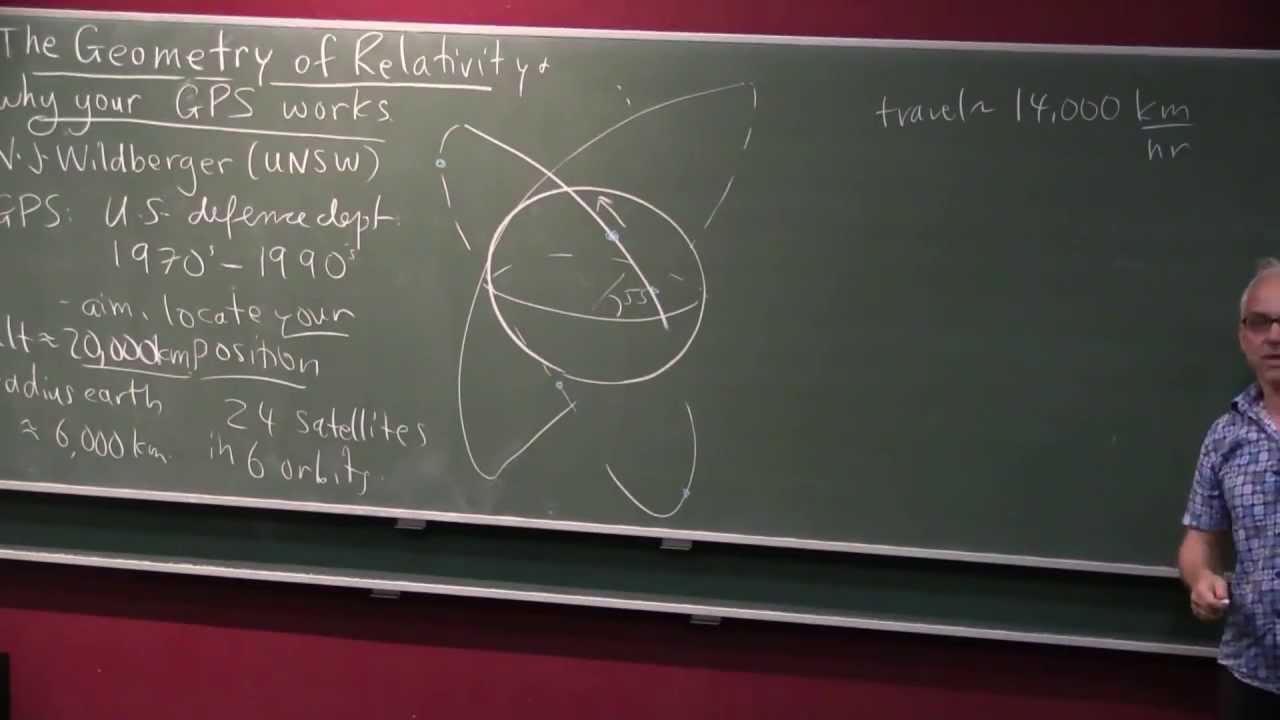 The Geometry of Relativity &
why your GPS works
N.J. Wildberger (UNSW)
GPS: U.S. defence dept.
1970's – 1990's
- aim. locate your
alt ≈ 20,000km position
radius earth
≈ 6,000 km.
24 satellites
in 6 orbits.
55°
travel ~ 14,000 km
hr